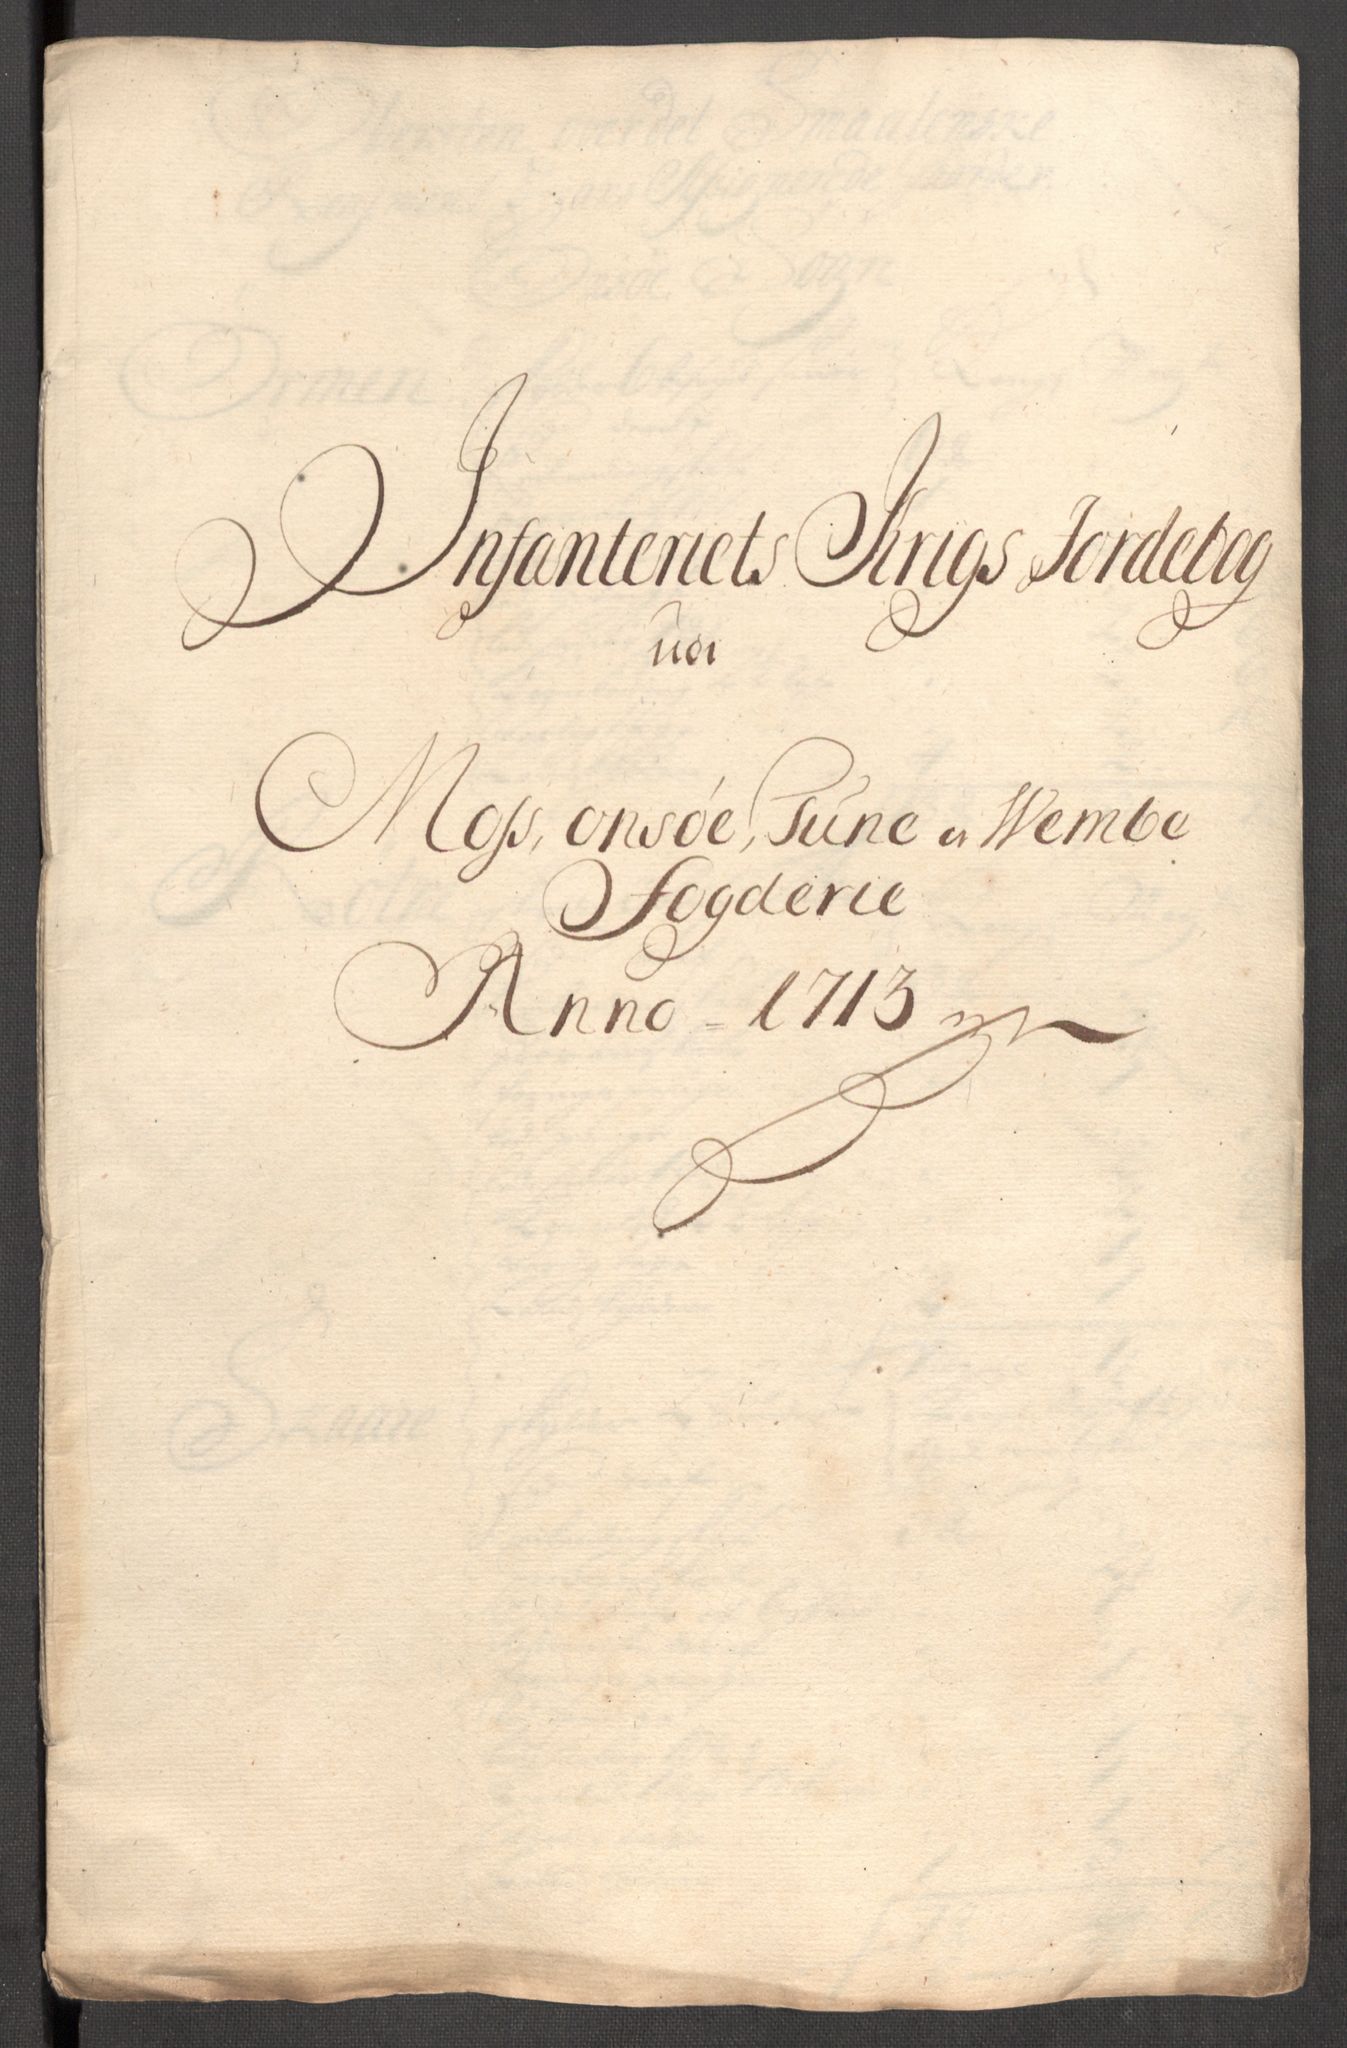 Infanteriets Krigs Jordebog
udi
Moss, onsöe, Tune og Wembe
Fogderie
Anno - 1713